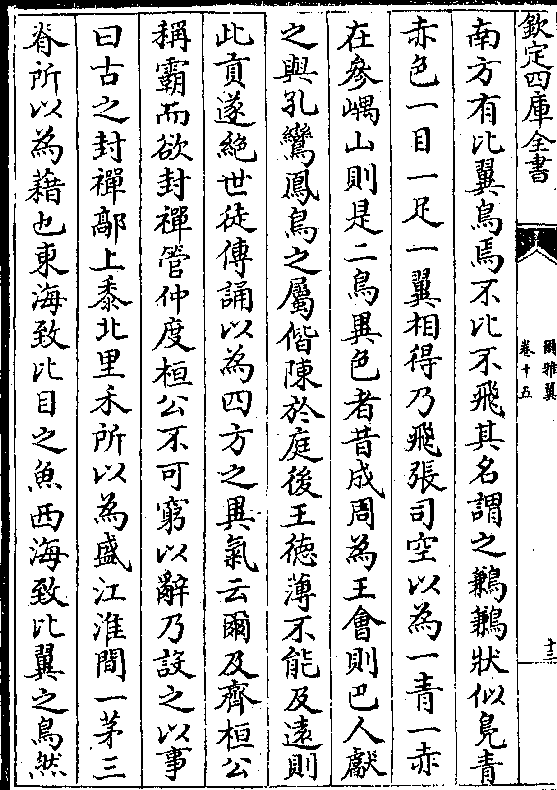 欽定四庫全書
爾雅翼
卷十五
十三
南方有比翼鳥焉不比不飛其名謂之鶼鶼狀似鳧青
赤色一目一足一翼相得乃飛張司空以為一青一赤
在參嵎山則是二鳥異色者昔成周為王會則巴人獻
之與孔鸞鳳鳥之屬偕陳於庭後王徳薄不能及逺則
此貢遂絶世徒傳誦以為四方之異氣云爾及齊桓公
稱霸而欲封禪管仲度桓公不可窮以辭乃設之以事
曰古之封禪鄗上黍北里禾所以為盛江淮間一茅三
脊所以為藉也東海致比目之魚西海致比翼之鳥然